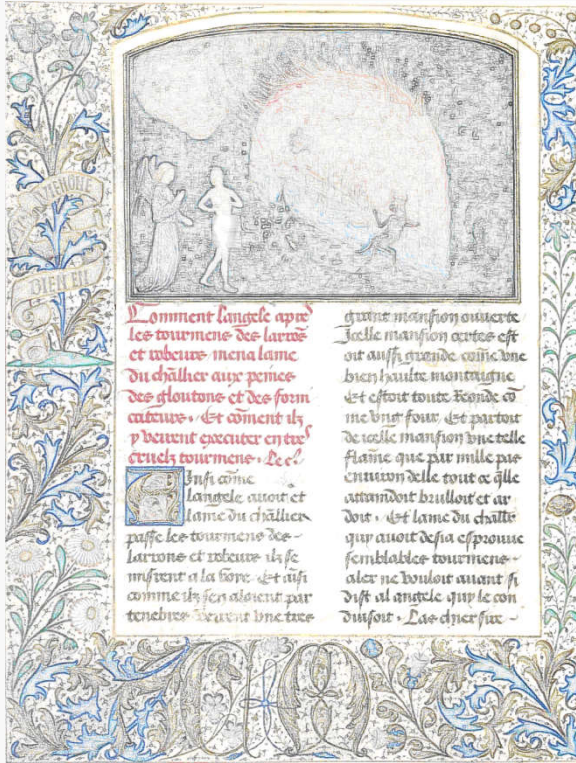 Comment langele apres
les tourmens des larrons
et robeurs mena lame
du chãllier aux peines
des gloutons et des forni
cateurs. Et cõment ilz
y veirent executer en tres
cruelz tourmens.
Ainsi cõme
langele auoit et
lame du chãllier
passe les tourmens des
larrons et robeurs ilz se
misrent a la voye. Et aisi
comme ilz sen aloient par
tenebres veirent vne tres
grant mansion ouuerte
Icelle mansion certes est
oit aussi grande cõme vne
bien haulte montaigne
Et estoit toute Ronde cõ
me vng four. Et partoit
de icelle mansion vne telle
flame que par mille pas
enuiron delle tout ce qlle
attaindoit brulloit et ar
doit. Et lame du challr
quy auoit desia esprouue
semblables tourmens
aler ne vouloit auant si
dist al angele quy le con
duisoit. Las chier sire
VIENGNE
BIEN EN